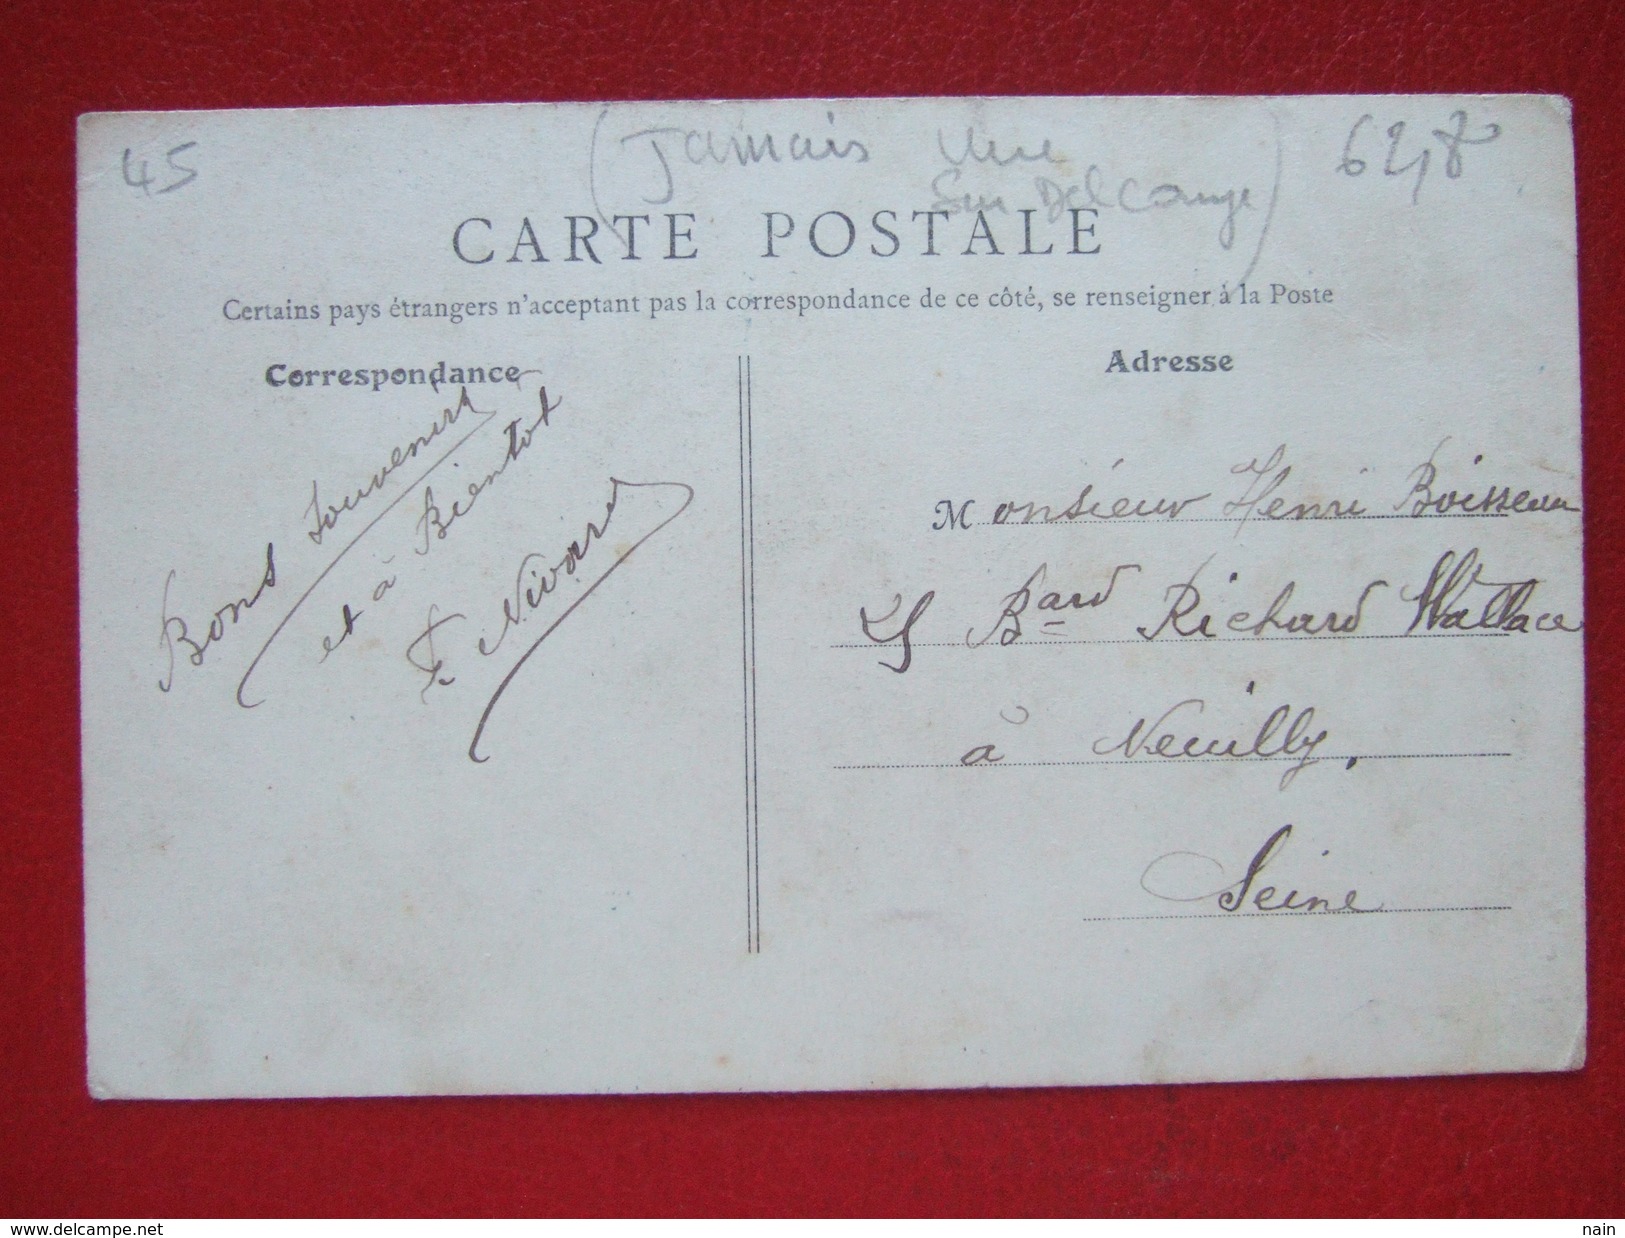 45
(Jamais vue
sur Delcampe)
62,8
CARTE POSTALE
Certains pays étrangers n'acceptant pas la correspondance de ce côté, se renseigner à la Poste
Correspondance
Bons Souvenirs
et à Bientot
F. Nivard
Adresse
Monsieur Henri Boisseau
25 Bard Richard Wallace
à Neuilly,
Seine
www.delcampe.net
nain